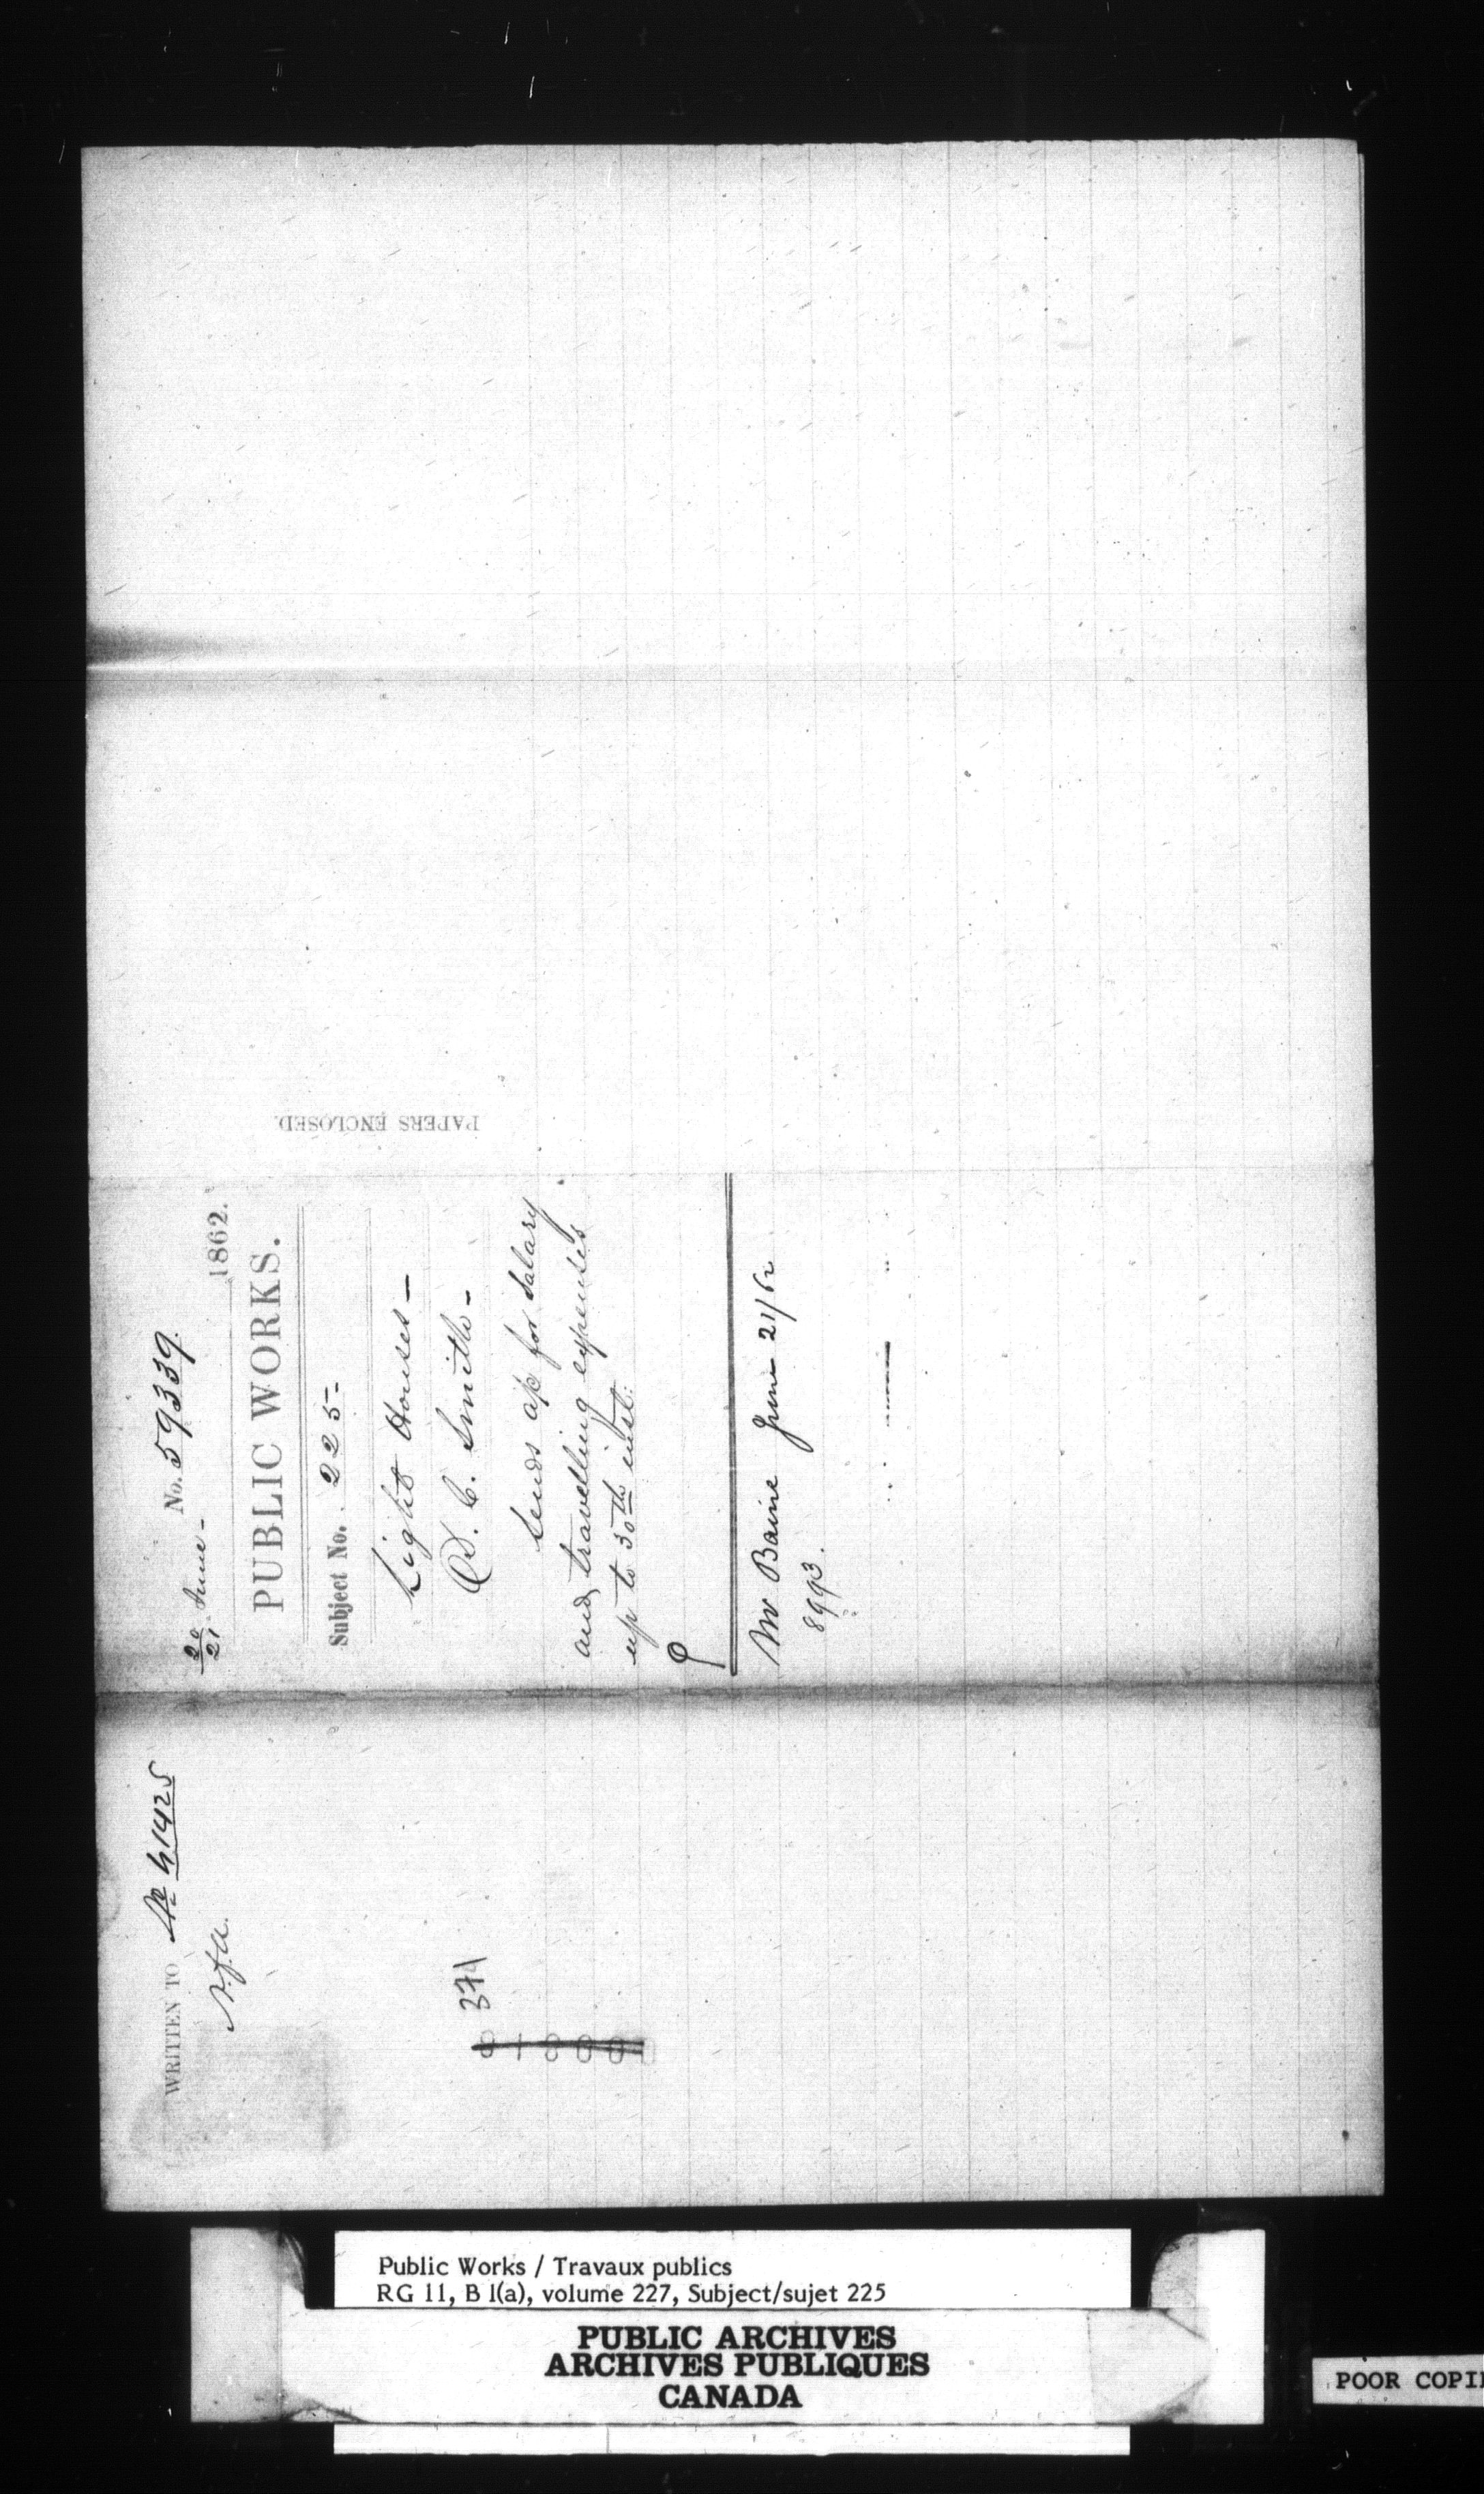 PAPERS ENCLOSED.
No. 59339.
20/21 June - 1862.
PUBLIC WORKS.
Subject No. 225-
Light Houses -
D. C. Smith -
Sends a/c for salary
and travelling expenses
up to 30th inst:
Mr Baine June 21/62
8993.
WRITTEN TO No 41425
n.f.a.
371
81800
Public Works / Travaux publics
RG 11, B 1(a), volume 227, Subject/sujet 225
PUBLIC ARCHIVES
ARCHIVES PUBLIQUES
CANADA
POOR COPI